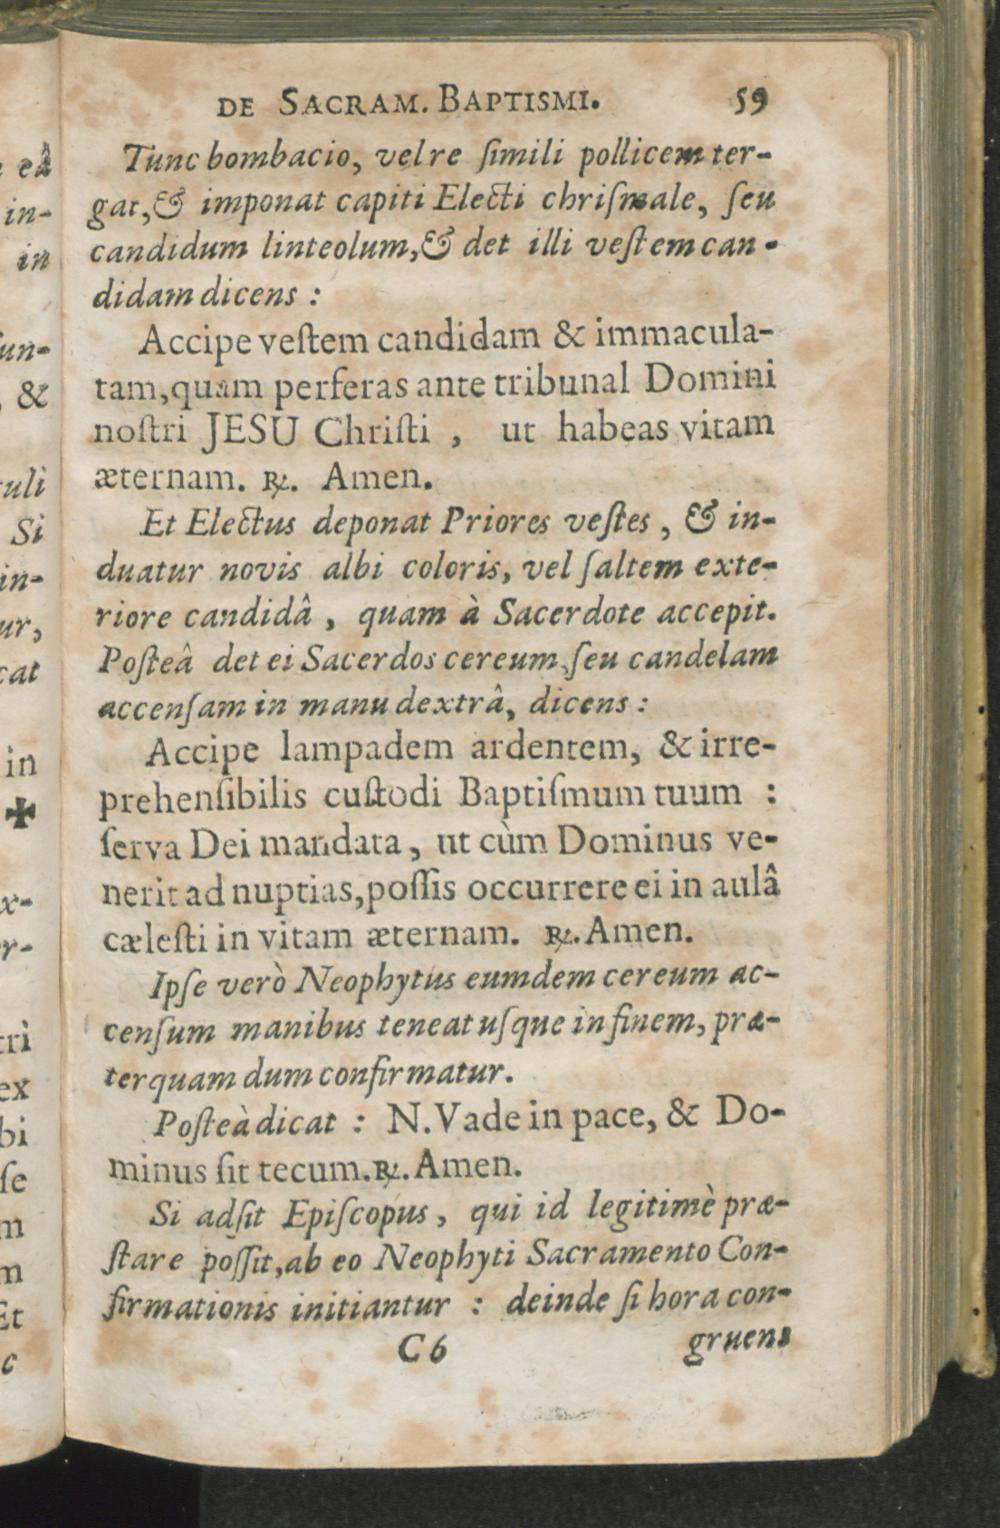 DE SACRAM. BAPTISMI. 59
Tunc bombacio, vel re ſimili pollicem ter-
gat, & imponat capiti Electi chriſmale, ſeu
candidum linteolum, & det illi veſtem can-
didam dicens :
Accipe veſtem candidam & immacula-
tam, quam perferas ante tribunal Domini
noſtri JESU Chriſti , ut habeas vitam
æternam. ℟. Amen.
Et Electus deponat Priores veſtes , & in-
duatur novis albi coloris, vel ſaltem exte-
riore candidâ , quam à Sacerdote accepit.
Poſteâ det ei Sacerdos cereum, ſeu candelam
accenſam in manu dextrâ, dicens :
Accipe lampadem ardentem, & irre-
prehenſibilis cuſtodi Baptiſmum tuum :
ſerva Dei mandata , ut cùm Dominus ve-
nerit ad nuptias, poſſis occurrere ei in aulâ
cæleſti in vitam æternam. ℟. Amen.
Ipſe verò Neophytus eumdem cereum ac-
cenſum manibus teneat uſque in finem, præ-
terquam dum confirmatur.
Poſteà dicat : N. Vade in pace, & Do-
minus ſit tecum. ℟. Amen.
Si adſit Epiſcopus , qui id legitimè præ-
ſtare poſſit, ab eo Neophyti Sacramento Con-
firmationis initiantur : deinde ſi hora con-
C 6 gruens